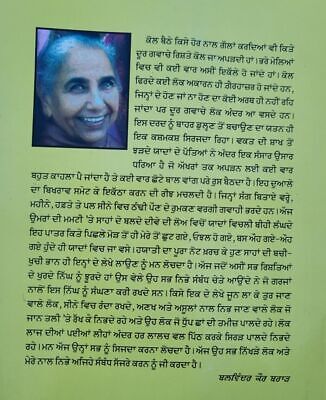 ਕੋਲ ਬੈਠੇ ਕਿਸੇ ਹੋਰ ਨਾਲ ਗੱਲਾਂ ਕਰਦਿਆਂ ਵੀ ਕਿਤੇ
ਦੂਰ ਗਵਾਚੇ ਰਿਸ਼ਤੇ ਕੋਲ ਜਾ ਅਪੜਦੀ ਹਾਂ। ਭਰੇ ਮੇਲਿਆਂ
ਵਿਚ ਵੀ ਕਈ ਵਾਰ ਅਸੀਂ ਇਕੱਲੇ ਹੋ ਜਾਂਦੇ ਹਾਂ। ਕੋਲ
ਫਿਰਦੇ ਕਈ ਲੋਕ ਅਕਾਰਨ ਹੀ ਗੈਰਹਾਜ਼ਰ ਹੋ ਜਾਂਦੇ ਹਨ,
ਜਿਨ੍ਹਾਂ ਦੇ ਹੋਣ ਜਾਂ ਨਾ ਹੋਣ ਦਾ ਕੋਈ ਅਰਥ ਹੀ ਨਹੀਂ ਰਹਿ
ਜਾਂਦਾ ਪਰ ਦੂਰ ਗਵਾਚੇ ਲੋਕ ਅੰਦਰ ਆ ਵਸਦੇ ਹਨ।
ਇਸ ਦਰਦ ਨੂੰ ਬਾਹਰ ਡੁਲ੍ਹਣ ਤੋਂ ਬਚਾਉਣ ਦਾ ਯਤਨ ਹੀ
ਇਕ ਕਸ਼ਮਕਸ਼ ਸਿਰਜਦਾ ਰਿਹਾ। ਵਕਤ ਦੀ ਸ਼ਾਖ ਤੋਂ
ਝੜਦੇ ਯਾਦਾਂ ਦੇ ਪੱਤਿਆਂ ਨੇ ਅੰਦਰ ਇਕ ਸੰਸਾਰ ਉਸਾਰ
ਧਰਿਆ ਹੈ ਜੋ ਅੱਖਰਾਂ ਤਕ ਅਪੜਨ ਲਈ ਕਈ ਵਾਰ
ਬਹੁਤ ਕਾਹਲਾ ਪੈ ਜਾਂਦਾ ਹੈ ਤੇ ਕਈ ਵਾਰ ਛੋਟੇ ਬਾਲ ਵਾਂਗ ਪਰੇ ਰੁਸ ਬੈਠਦਾ ਹੈ। ਇਹ ਦੁਆਲੇ
ਦਾ ਬਿਖਰਾਵ ਸਮੇਟ ਕੇ ਇਕੱਠਾ ਕਰਨ ਦੀ ਰੀਝ ਮਚਲਦੀ ਹੈ। ਜਿਨ੍ਹਾਂ ਸੰਗ ਬਿਤਾਏ ਵਰ੍ਹੇ,
ਮਹੀਨੇ, ਹਫ਼ਤੇ ਤੇ ਪਲ ਸੀਨੇ ਵਿਚ ਠੰਢੀ ਪੌਣ ਦੇ ਰੁਮਕਣ ਵਰਗੀ ਗਵਾਹੀ ਭਰਦੇ ਹਨ। ਅੱਜ
ਉਮਰਾਂ ਦੀ ਮਮਟੀ 'ਤੇ ਸਾਹਾਂ ਦੇ ਬਲਦੇ ਦੀਵੇ ਦੀ ਲੋਅ ਵਿਚੋਂ ਯਾਦਾਂ ਵਿਚਲੀ ਬੀਹੀ ਲੰਘਦੇ
ਇਹ ਪਾਤਰ ਕਿਤੇ ਪਿਛਲੇ ਮੋੜ ਤੋਂ ਹੀ ਮੇਰੇ ਤੋਂ ਛੁਟ ਗਏ, ਓਝਲ ਹੋ ਗਏ, ਬਸ ਔਹ ਗਏ-ਔਹ
ਗਏ ਹੁੰਦੇ ਹੀ ਯਾਦਾਂ ਵਿਚ ਜਾ ਵਸੇ। ਹਯਾਤੀ ਦਾ ਪੂਰਾ ਨੋਟ ਖ਼ਰਚ ਕੇ ਹੁਣ ਸਾਹਾਂ ਦੀ ਬਚੀ-
ਖੁਚੀ ਭਾਨ ਹੀ ਇਨ੍ਹਾਂ ਦੇ ਲੇਖੇ ਲਾਉਣ ਨੂੰ ਮਨ ਲੋਚਦਾ ਹੈ। ਅੱਜ ਜਦੋਂ ਅਸੀਂ ਸਭ ਰਿਸ਼ਤਿਆਂ
ਦੇ ਖੁਰਦੇ ਨਿੱਘ ਨੂੰ ਝੂਰਦੇ ਹਾਂ ਉਸ ਵੇਲੇ ਉਹ ਸਭ ਨਿਭੇ ਸਬੰਧ ਚੇਤੇ ਆਉਂਦੇ ਨੇ ਜੋ ਗਰਜਾਂ
ਨਾਲੋਂ ਇਸ ਨਿੱਘ ਨੂੰ ਸੰਘਣਾ ਕਰੀ ਰਖਦੇ ਸਨ। ਕਿਸੇ ਇਕ ਦੇ ਲੇਖੇ ਜੂਨ ਲਾ ਕੇ ਤੁਰ ਜਾਣ
ਵਾਲੇ ਲੋਕ, ਸੀਨੇ ਵਿਚ ਰੰਦਾ ਰਖਦੇ, ਅਣਖ ਅਤੇ ਅਸੂਲਾਂ ਨਾਲ ਨਿਭ ਜਾਣ ਵਾਲੇ ਲੋਕ ਜੋ
ਜਾਨ ਤਲੀ 'ਤੇ ਰੱਖ ਕੇ ਨਿਭਦੇ ਰਹੇ ਅਤੇ ਉਹ ਲੋਕ ਜੋ ਧੁੱਪ ਛਾਂ ਦੀ ਤਮੀਜ਼ ਪਾਲਦੇ ਰਹੇ। ਲੋਕ
ਲਾਜ ਦੀਆਂ ਪਈਆਂ ਲੀਹਾਂ ਅੰਦਰ ਹਰ ਲਾਲਚ ਵਲ ਪਿੱਠ ਕਰਕੇ ਸਿਰੜ ਪਾਲਦੇ ਨਿਭਦੇ
ਰਹੇ। ਮਨ ਅੱਜ ਉਨ੍ਹਾਂ ਸਭ ਨੂੰ ਸਿਜਦਾ ਕਰਨਾ ਲੋਚਦਾ ਹੈ। ਅੱਜ ਉਹ ਸਭ ਨਿੱਖੜੇ ਲੋਕ ਅਤੇ
ਮੇਰੇ ਨਾਲ ਨਿਭੇ ਅਜਿਹੇ ਸੰਬੰਧ ਸੱਜਰੇ ਕਰਨ ਨੂੰ ਜੀ ਕਰਦਾ ਹੈ।
ਬਲਵਿੰਦਰ ਕੌਰ ਬਰਾੜ